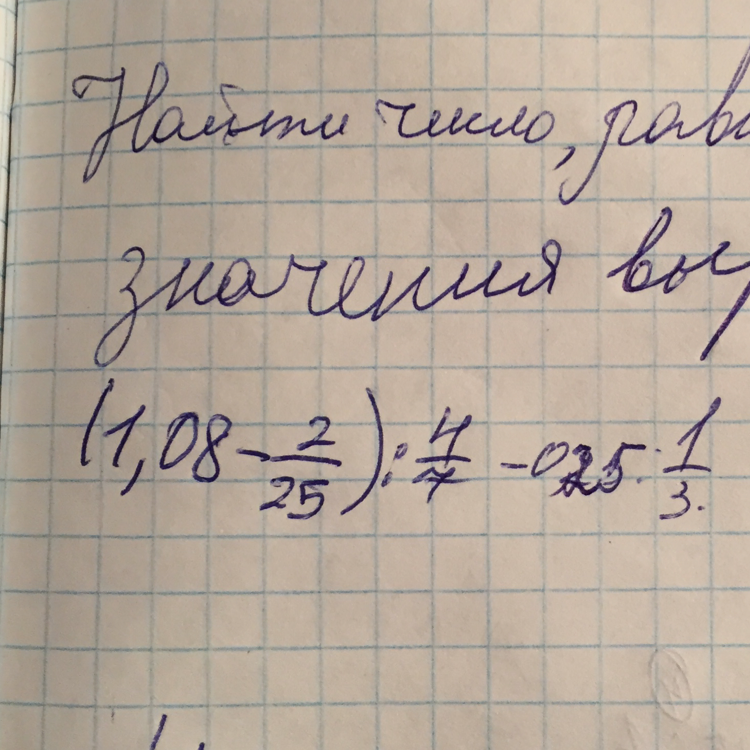 Найти число, равн
значения выр
(1,08 - 2/25) : 4/7 - 0,25 : 1/3.